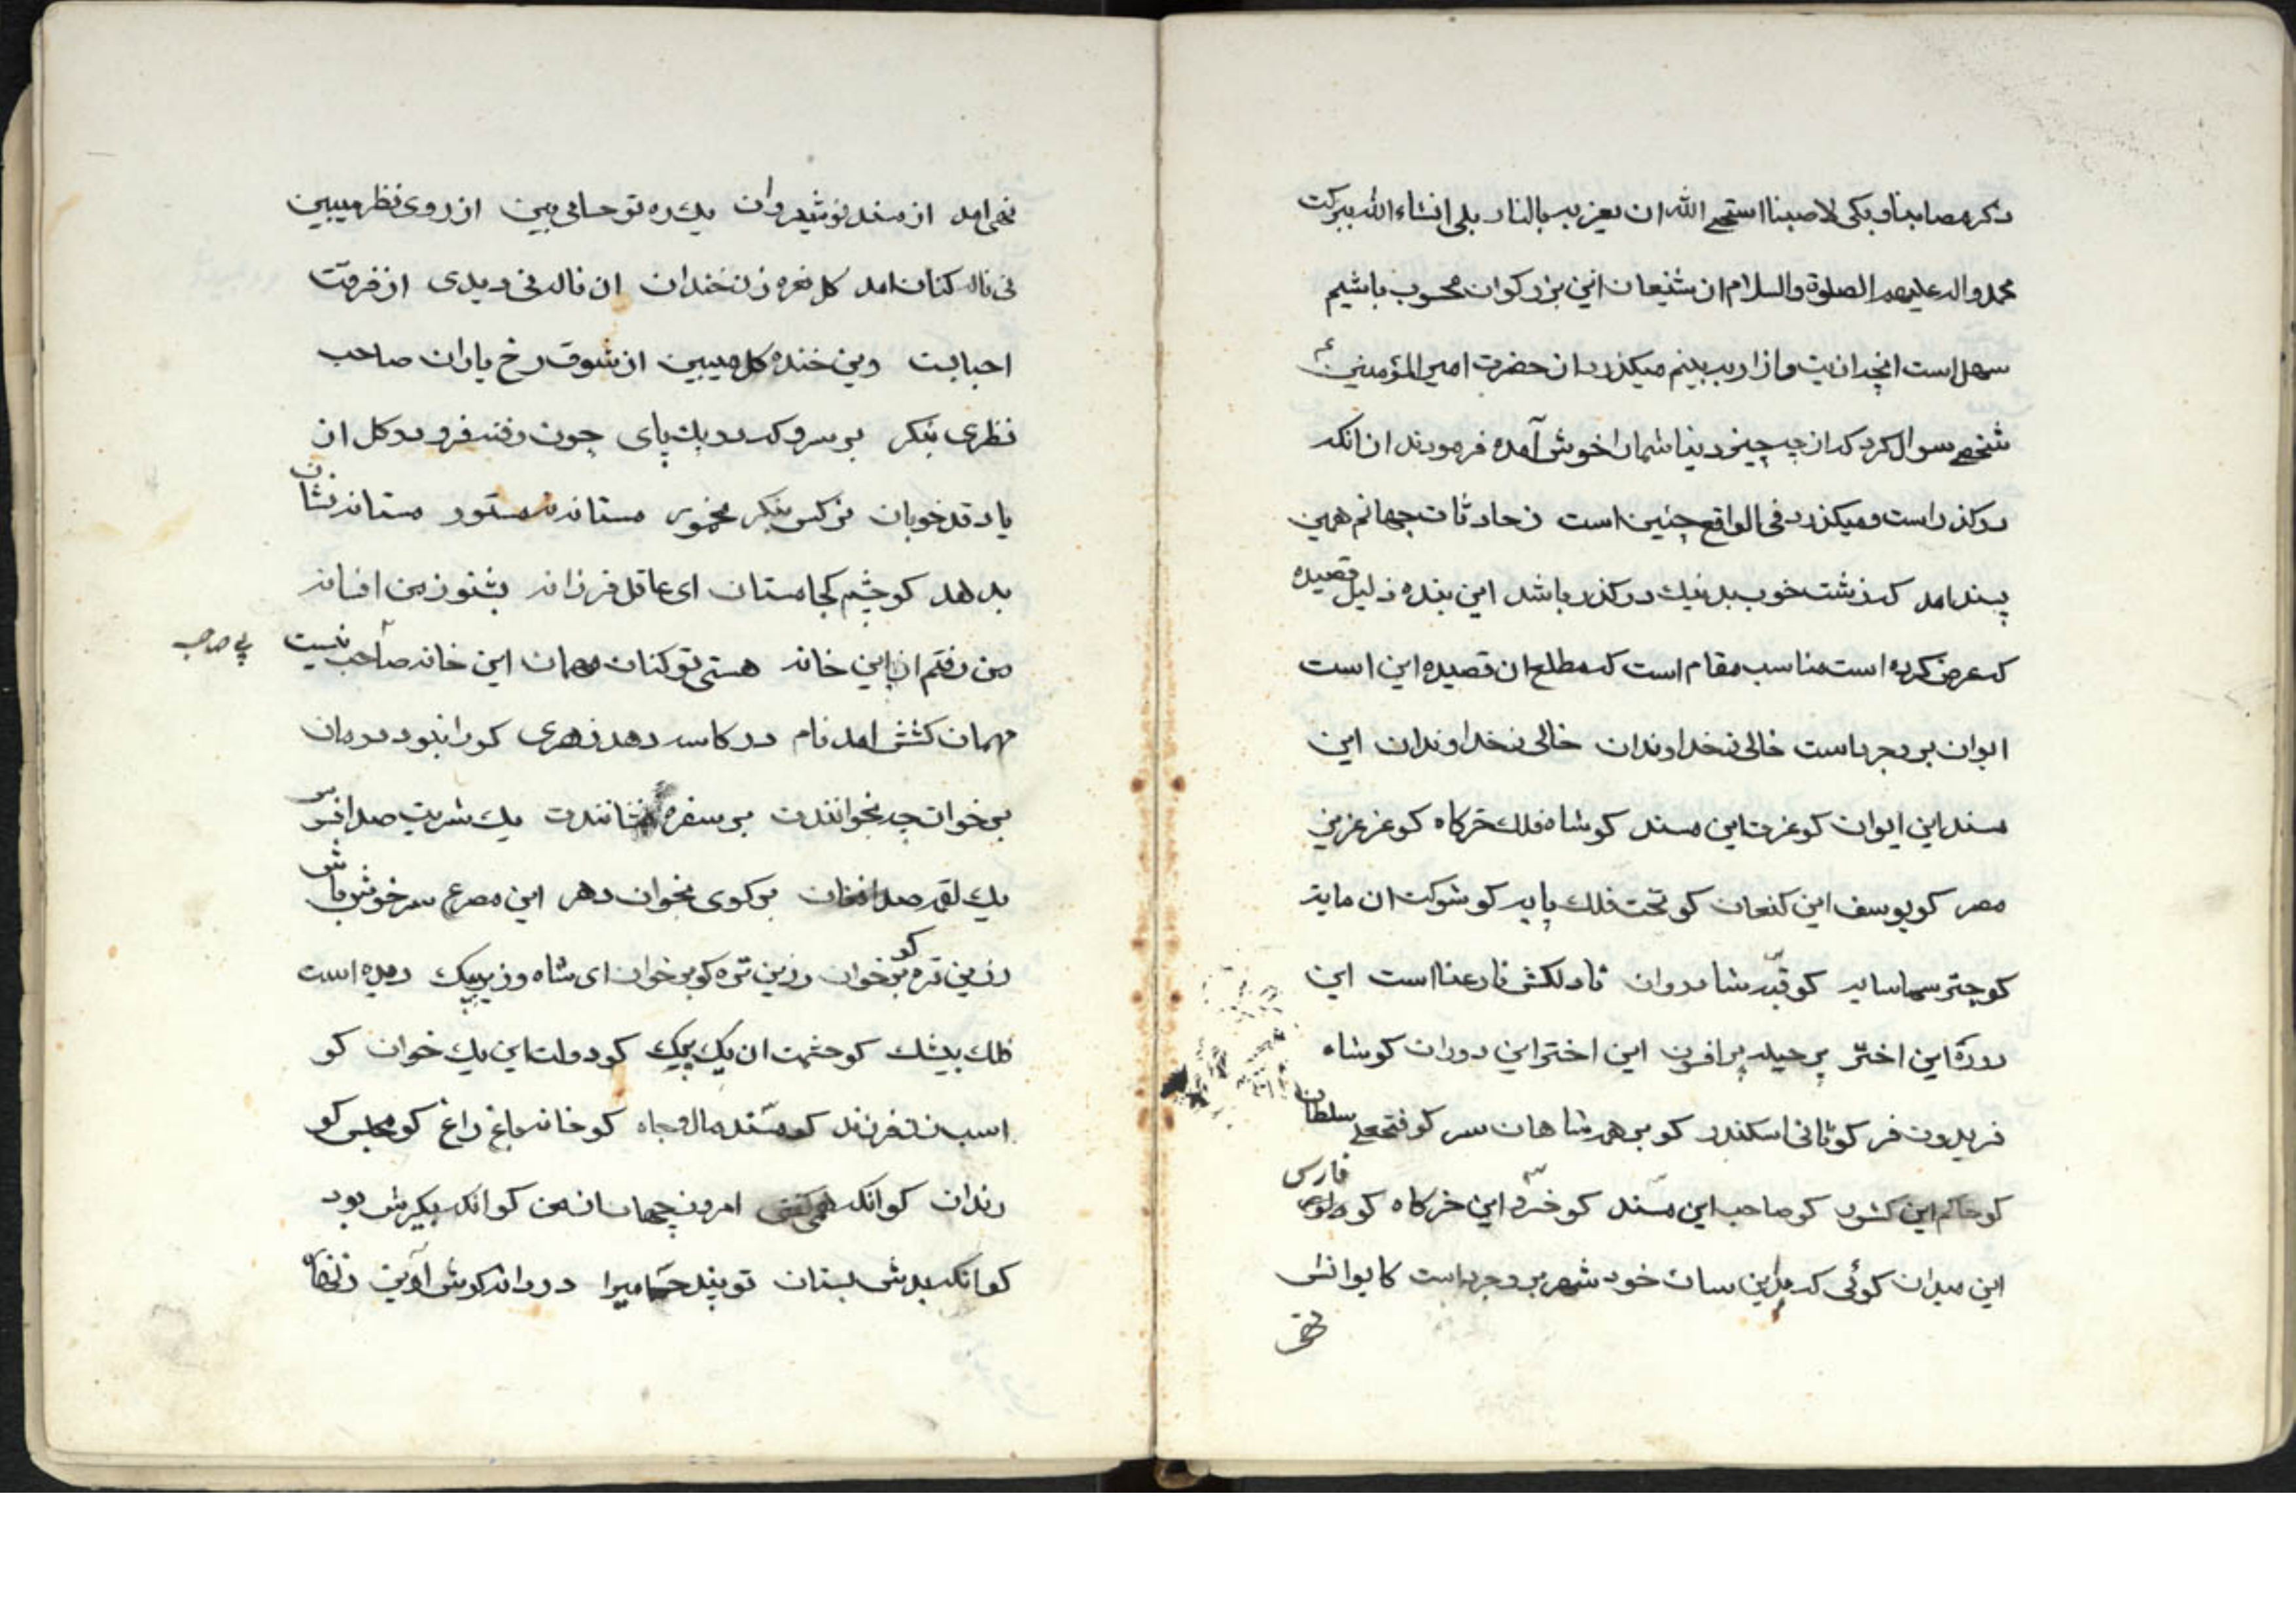 ذکر مصابنا و بکی لاصبنا استحی الله ان یعزبه بالنار بلی انشاءالله ببرکت
محمد و اله علیهم الصلوة والسلام از شیعان این بزرکوان محسوب باشیم
سهل است انچه اذیت و ازار به بینم میکذرد از حضرت امیر المؤمنین ع
شخصی سوال کرد که از چه چیز دنیا شما را خوش آمده فرمودند از انکه
درکذر است و میکذرد فی الواقع چنین است ز حادثات جهانم همین
پسند امد که زشت خوب بد نیك در کذر باشد این بنده ذلیل قصیده
که عرض کرده است مناسب مقام است که مطلع ان قصیده این است
ایوان بروجرد است خالی ز خداوندان خالی ز خداوندان این
مسند این ایوان کو عزت این مسند کو شاه فلك خرکاه کو عز عزیز
مصر کو یوسف این کنعان کو تخت فلك پایه کو شوکت ان مایه
کو چتر سما سایه کو قبّه شادروان نا دلکش نا رعنا است این
دوره این اختر پر حیله پر افسون این اختر این دوران کو شاه
فریدون فر کو ثانی اسکندر کو بر همه شاهان سر کو فتحعلی سلطان
کو حاکم این کشور کو صاحب این مسند کو خسرو این خرکاه کو فارس
این میدان کوئی که بدین سان خود شهر بروجرد است کایوانش
نمی امد از مسند نوشیروان یك ره تو حسامی بین از روی نظر میبین
نی ناله کنان امد کل نعره زن خندان ان ناله نی دیدی از فرقت
احبابت وین خنده کل میبین از شوق رخ یاران صاحب
نظری بنکر بر سرو که در یك پای چون رفته فرو در کل از
یاد قد خوبان نرکس بنکر مخمور مستانه مستور مستانه نشان
بدهد کو چشم کجا مستان ای عاقل فرزانه بشنو ز من افسانه
من رفتم از این خانه هستی تو کنان مهمان این خانه صاحب نیست
پی صاحبه
مهمان کشش امد نام در کاسه دهد زهری کورا نبود درمان
بر خوان چه بخوانندت بر سفره نشانندت یك شربت صد افسوس
یك لقمه صد افغان بر کوی بخوان دهر این مصرع سرخوش باش
زرین تره کو بر خوان زرین تره کو بر خوان ای شاه وزیر بیك دیده است
فلك بیشك کو حشمت ان یك بیك کو دولت این یك خوان کو
اسب زن فرزند کو مسند مال و جاه کو خانه باغ راغ کو مجلس کو
رندان کو انکه همی کفتی امروز جهان از من کو انکه بکیرش بود
کو انکه بدش بستان تو پند حسامی را در دانه کوش آویز